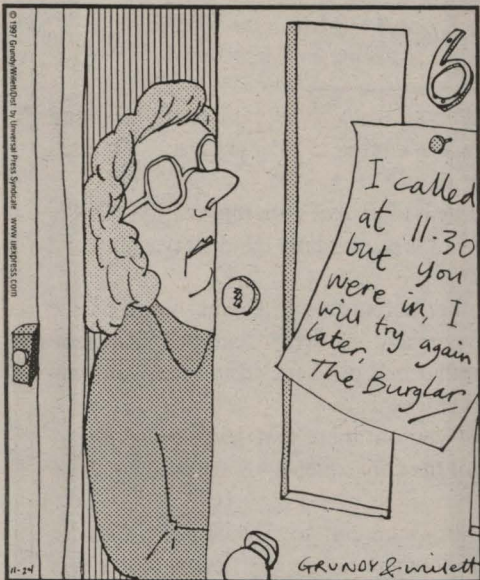 © 1997 Grundy/Willett/Dist by Universal Press Syndicate www.uexpress.com
6
I called
at 11-30
but you
were in, I
will try again
later,
The Burglar
11-24
GRUNDY & Willett